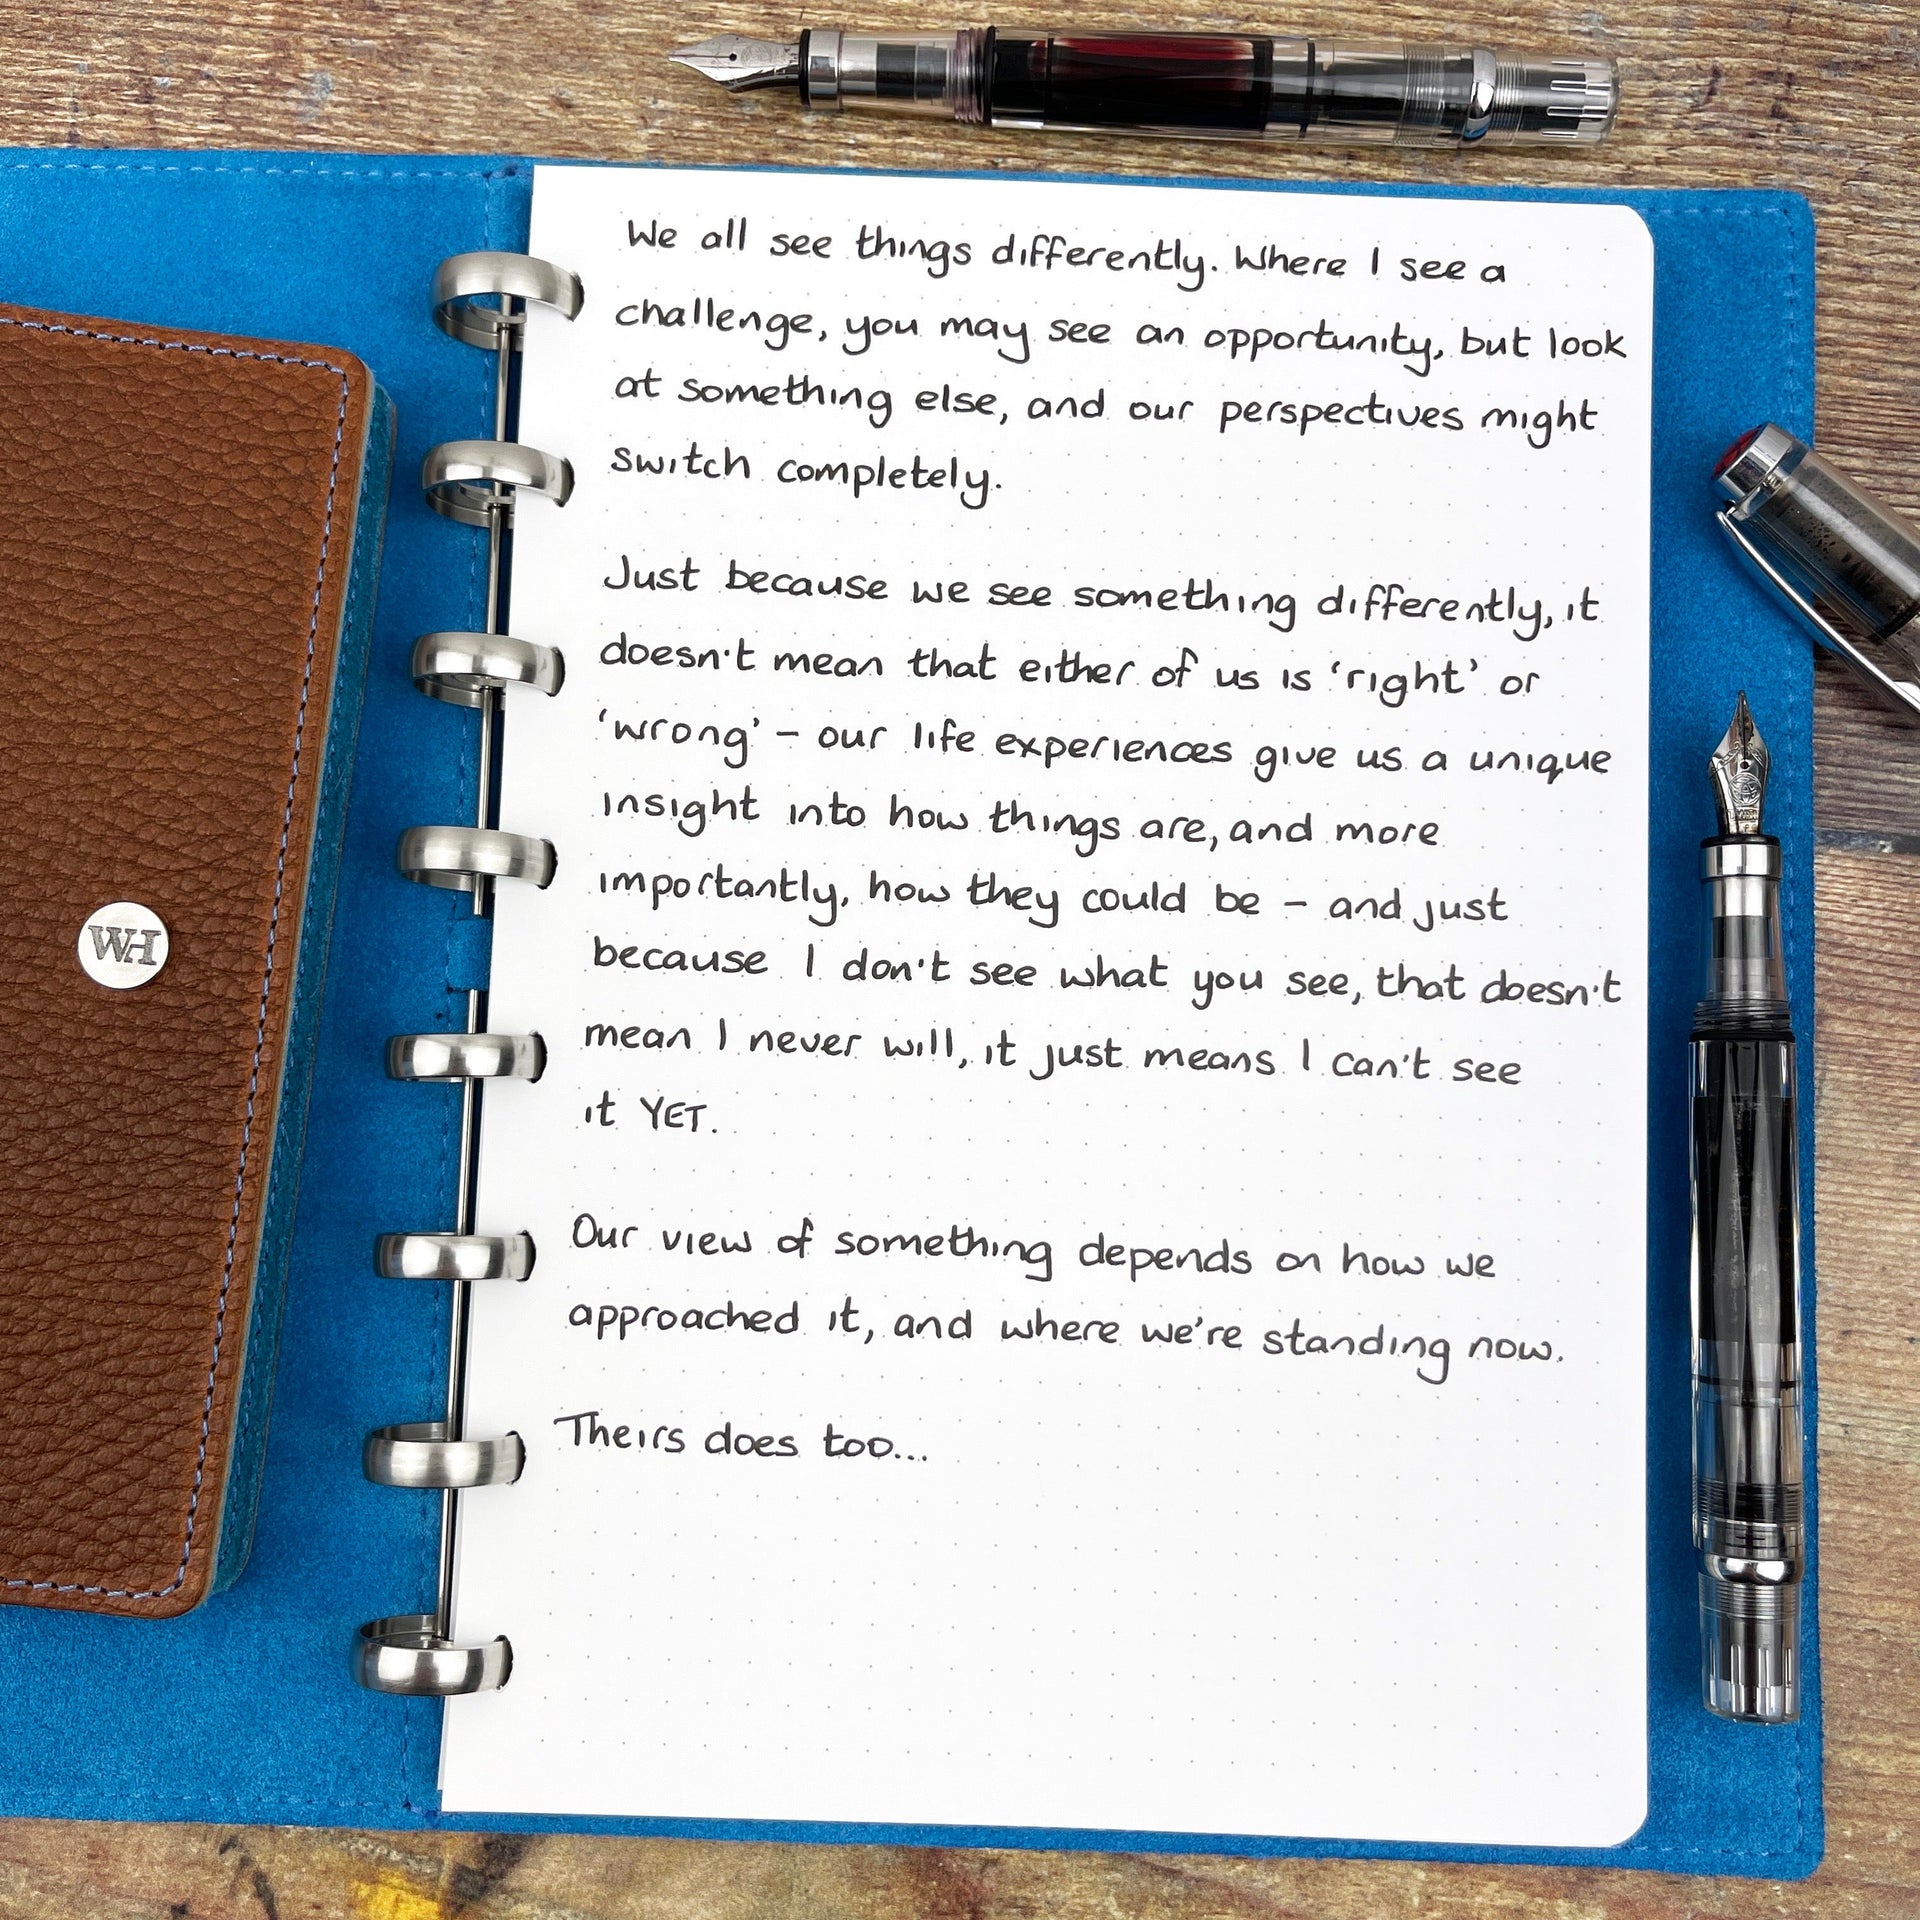 We all see things differently. Where I see a
challenge, you may see an opportunity, but look
at something else, and our perspectives might
switch completely.
Just because we see something differently, it
doesn't mean that either of us is 'right' or
'wrong' - our life experiences give us a unique
insight into how things are, and more
importantly, how they could be - and just
because I don't see what you see, that doesn't
mean I never will, it just means I can't see
it YET.
Our view of something depends on how we
approached it, and where we're standing now.
Theirs does too...
WH